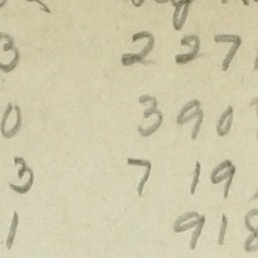 3 2 2 7
0 3 9 0
3 7 1 9
1 9 1 8